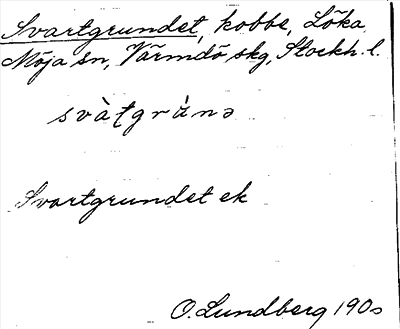 Svartgrundet, kobbe, Löka,
Möja sn, Värmdö skg, Stockh. l.
svàt̩grùnə
Svartgrundet ek
O. Lundberg 190